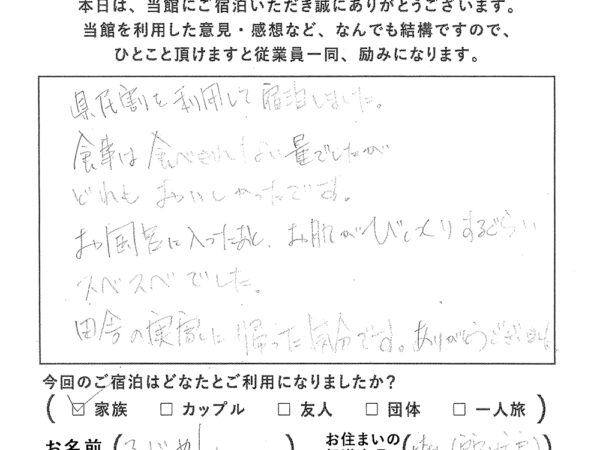 本日は、当館にご宿泊いただき誠にありがとうございます。
当館を利用した意見・感想など、なんでも結構ですので、
ひとこと頂けますと従業員一同、励みになります。
県民割を利用して宿泊しました。
食事は食べきれない量でしたが
どれもおいしかったです。
お風呂に入ったあと、お肌がびっくりするぐらい
スベスベでした。
田舎の実家に帰った気分です。ありがとうございました。
今回のご宿泊はどなたとご利用になりましたか?
(☑ 家族 □ カップル □ 友人 □ 団体 □ 一人旅)
お名前
お住まいの